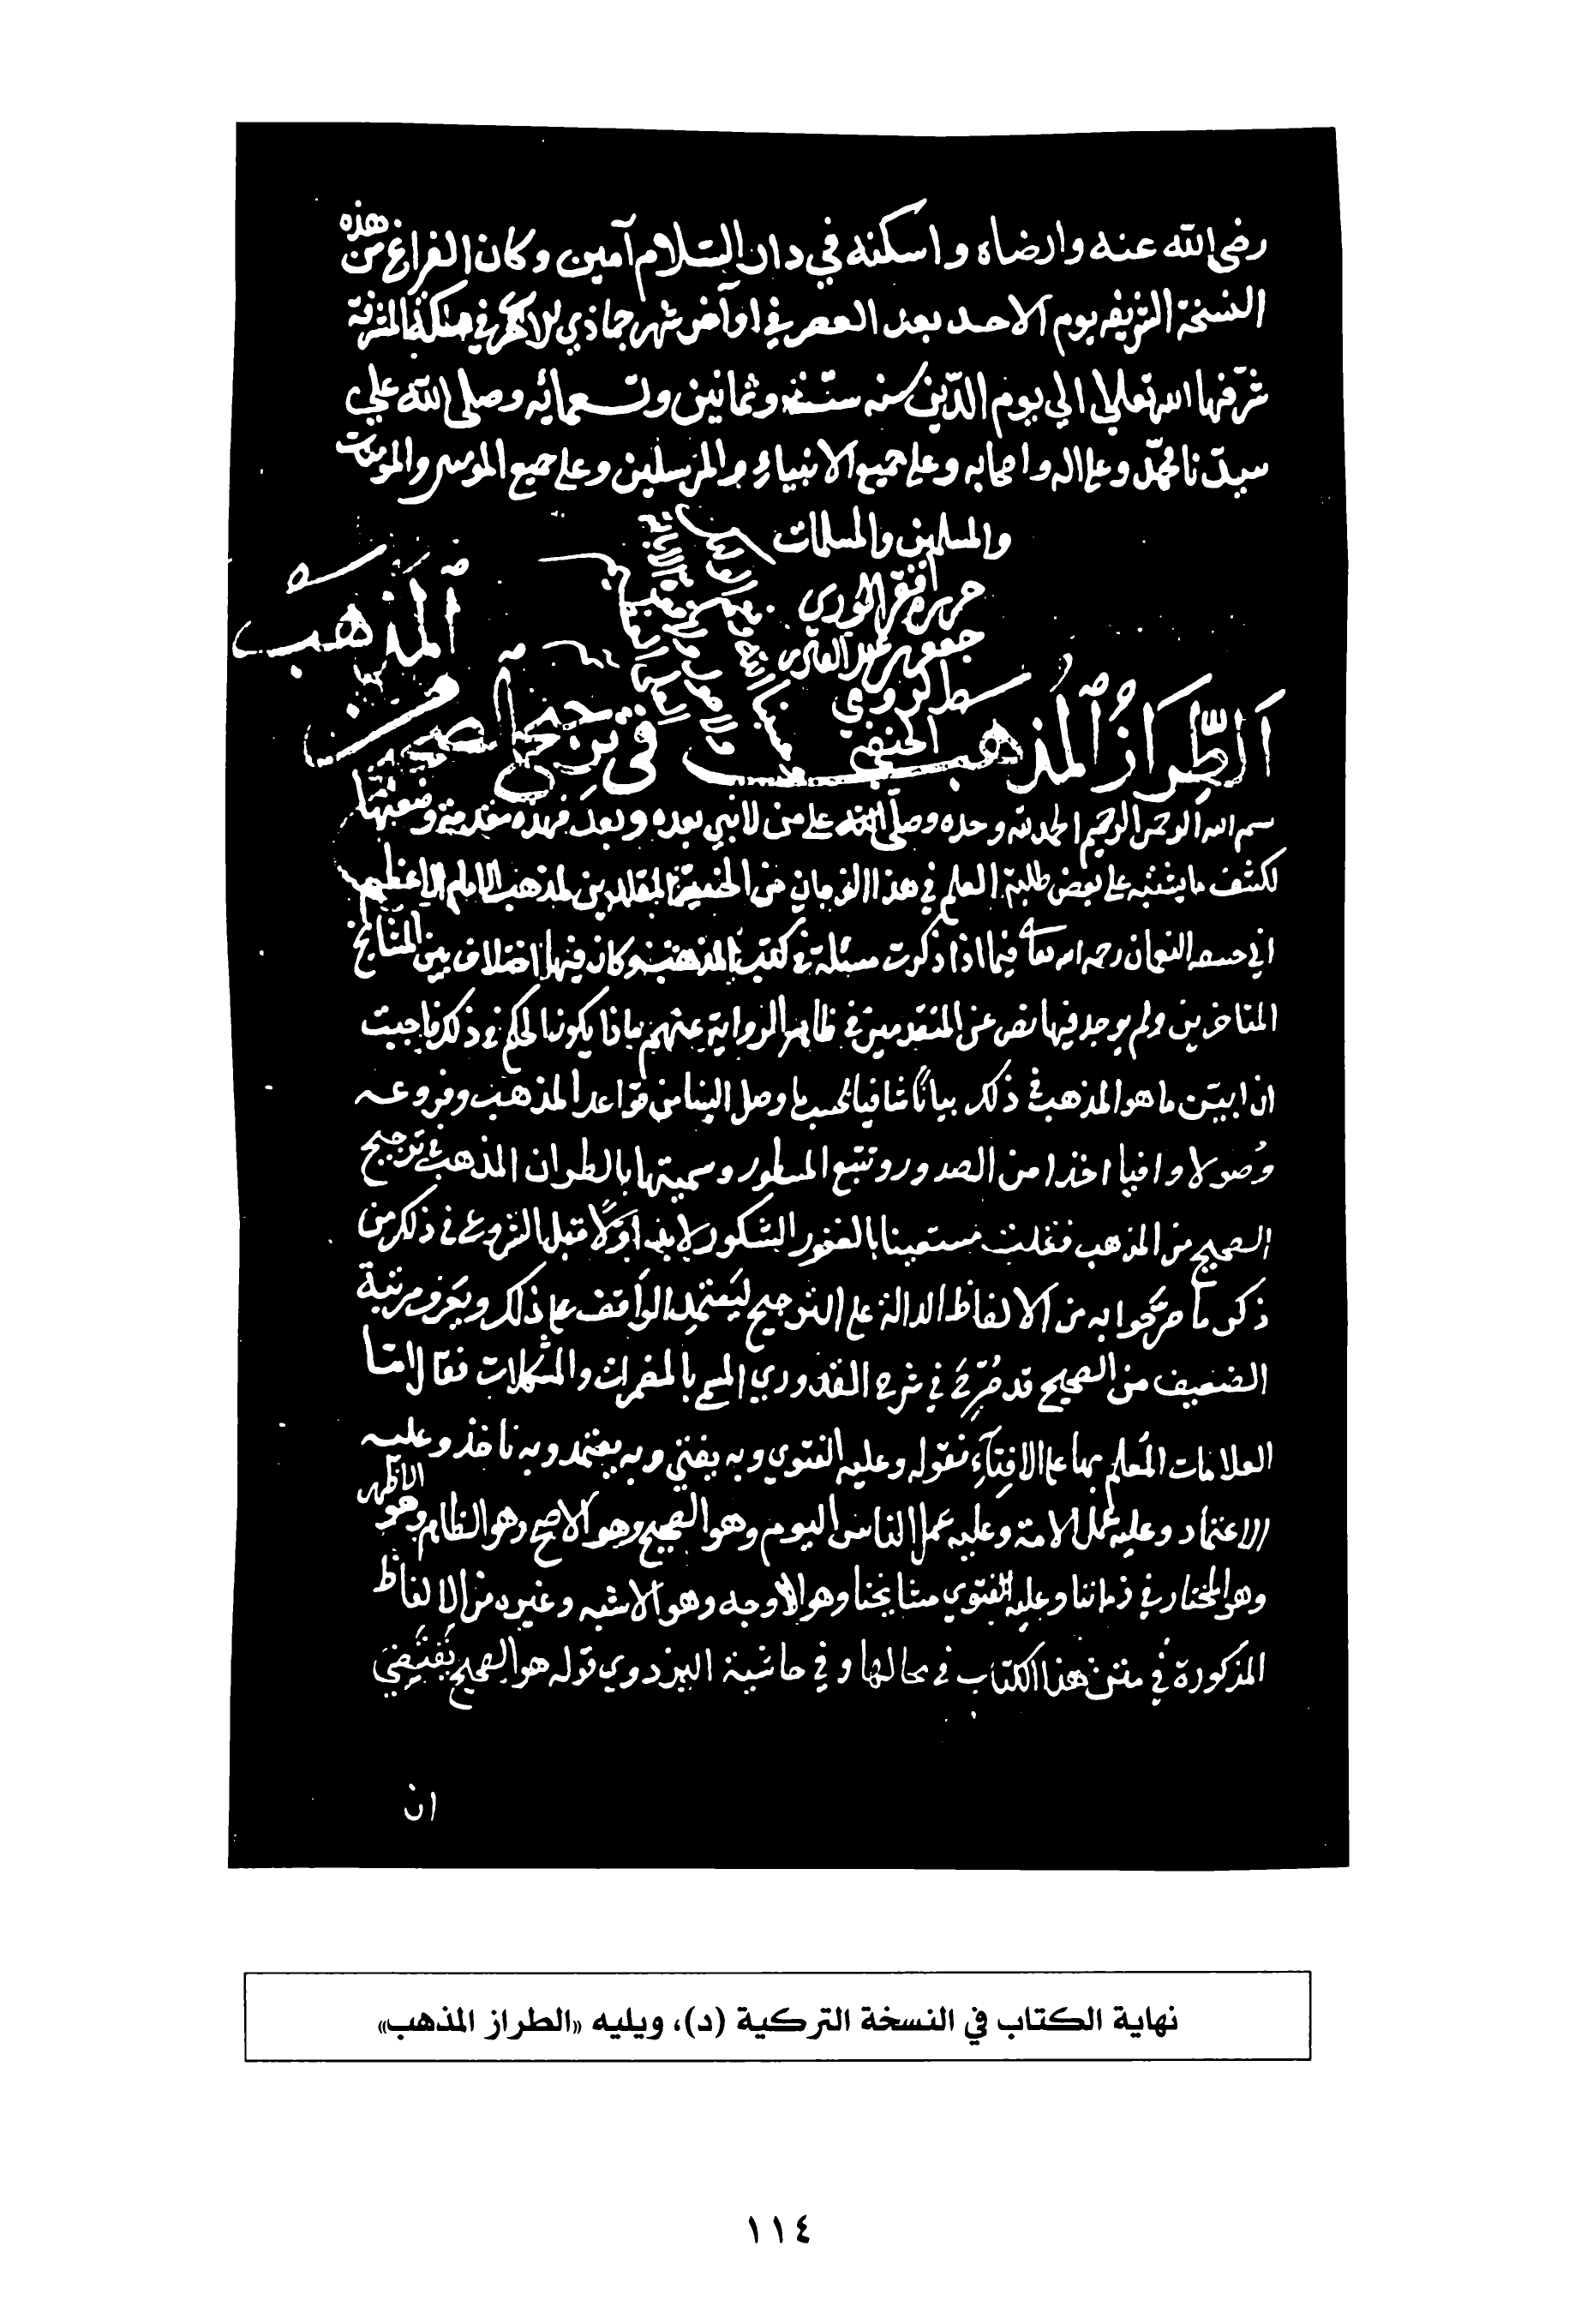 رضي الله عنه وارضاه واسكنه في دار السلام آمين وكان الفراغ من هذه
النسخة الشريفه يوم الاحد بعد العصر في اواخر شهر جماذي في مكة المشرفة
شرفها الله تعالى الي يوم الدين سنه ستة وثمانين وتسعمايه وصلى الله علي
سيدنا محمد وعلى اله واصحابه وعلى جميع الانبياء والمرسلين وعلى جميع المومنين والمومنات
والمسلمين والمسلمات
حرره افقر الوري
الحنفي
الطراز المذهب في ترجيح الصحيح من المذهب
بسم الله الرحمن الرحيم الحمد لله وحده وصلى الله على من لا نبي بعده وبعد فهذه مقدمة وضعتها
لكشف ما يشتبه على بعض طلبة العلم في هذا الزمان من الحنفية المقلدين لمذهب الامام الاعظم
ابي حنيفه النعمان رحمه الله تعالى فيما اذا ذكرت مسئلة في كتب المذهب وكان فيها اختلاف بين المشايخ
المتاخرين ولم يوجد فيها نص عن المتقدمين في ظاهر الرواية عنهم ماذا يكون الحكم في ذلك فاجبت
ان ابين ما هو المذهب في ذلك بيانا شافيا بحسب ما وصل الينا من قواعد المذهب وفروعه
وصولا وافيا اخذا من الصدور وتتبع المسطور وسميتها بالطراز المذهب في ترجيح
الصحيح من المذهب فقلت مستعينا بالغفور الشكور لا بد اولا قبل الشروع في ذلك من
ذكر ما صرحوا به من الالفاظ الدالة على الترجيح ليعتمد الواقف على ذلك ويعرف مرتبة
الضعيف من الصحيح قد صرح في شرح القدوري المسمى بالمضمرات والمشكلات فقال اما
العلامات المعلم بها على الافتاء فقوله وعليه الفتوي وبه يفتي وبه يعتمد وبه ناخذ وعليه
الاعتماد وعليه عمل الامة وعليه عمل الناس اليوم وهو الصحيح وهو الاصح وهو الظاهر وهو الاظهر
وهو المختار في زماننا وعليه الفتوي مشايخنا وهو الاوجه وهو الاشبه وغيره من الالفاظ
المذكورة في متن هذا الكتاب في محالها وفي حاشية البزدوي قوله هو الصحيح يقتضي
ان
نهاية الكتاب في النسخة التركية (د)، ويليه «الطراز المذهب»
١١٤